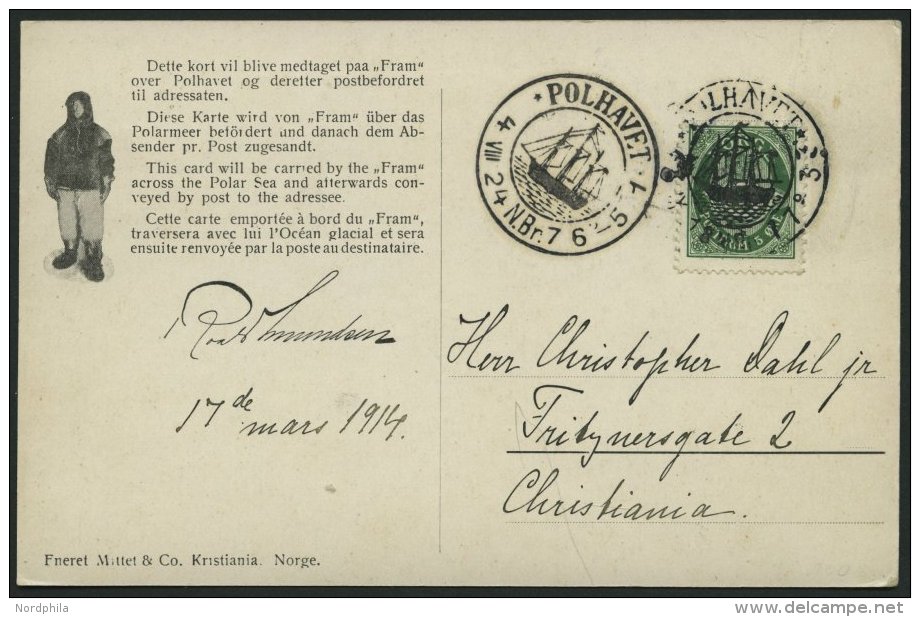 Dette kort vil blive medtaget paa „Fram“
over Polhavet og deretter postbefordret
til adressaten.
Diese Karte wird von „Fram“ über das
Polarmeer befördert und danach dem Ab-
sender pr. Post zugesandt.
This card will be carried by the „Fram“
across the Polar Sea and afterwards con-
veyed by post to the adressee.
Cette carte emportée à bord du „Fram“,
traversera avec lui l'Océan glacial et sera
ensuite renvoyée par la poste au destinataire.
* POLHAVET
4 VIII 24 N.Br. 76
POLHAVET
Roald Amundsen
17de mars 1914.
Herr Christopher Dahl jr
Fritznersgate 2
Christiania.
Eneret Mittet & Co. Kristiania. Norge.
Nordphila
www.delcampe.net